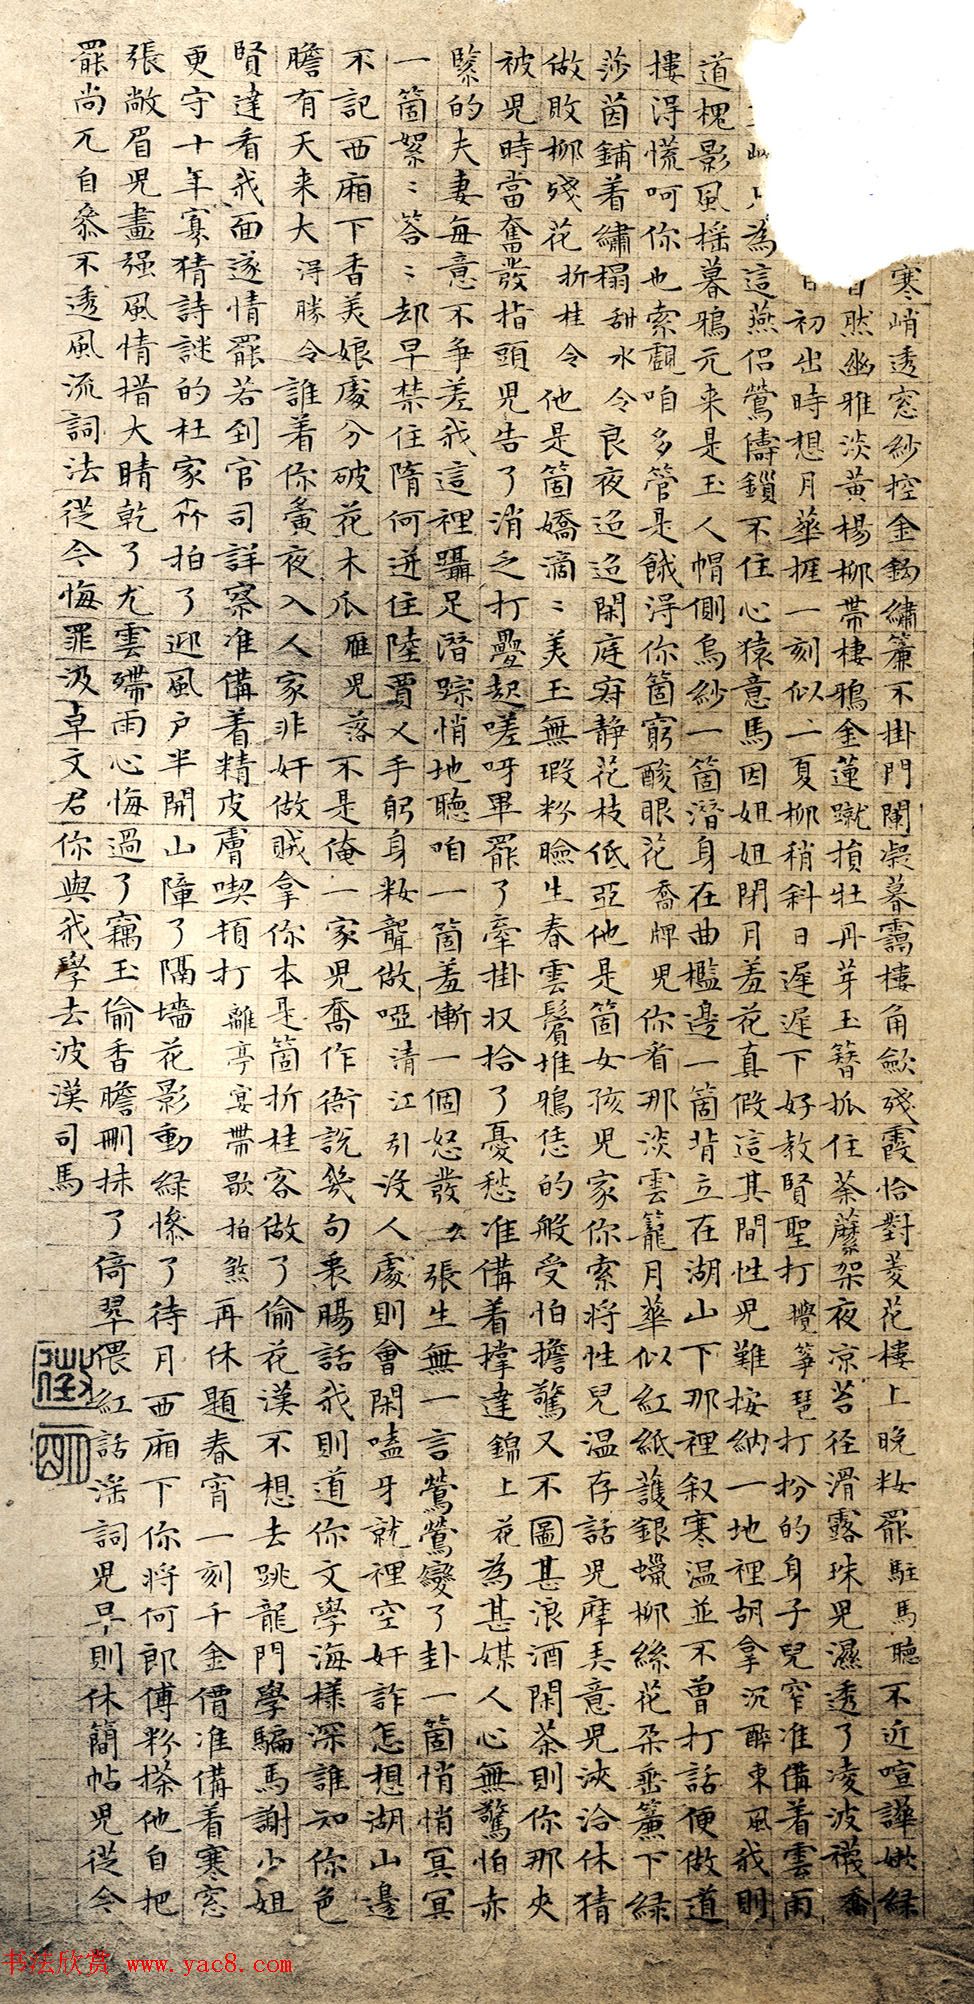 寒峭透窓紗控金鈎繡簾不掛門闌凝暮靄樓角斂殘霞恰對菱花樓上晚粧罷駐馬聽不近喧譁嫩綠
然幽雅淡黃楊柳帶棲鴉金蓮蹴損牡丹芽玉簪抓住荼蘼架夜凉苔径滑露珠兒濕透了凌波襪喬
日初出時想月華捱一刻似一夏柳稍斜日遲遲下好教賢聖打攪筝琶打扮的身子兒窄准備着雲雨
為這燕侶鶯儔鎖不住心猿意馬因姐姐閉月羞花真假這其間性兒難按納一地裡胡拿沉醉東風我則
道槐影風搖暮鴉元来是玉人帽側烏紗一箇潛身在曲檻邊一箇背立在湖山下那裡叙寒温並不曾打話便做道
摟淂慌呵你也索覷咱多管是餓淂你箇窮酸眼花喬牌兒你看那淡雲籠月華似紅紙護銀蠟柳絲花朶垂簾下綠
莎茵鋪着繡榻甜水令良夜迢迢閑庭寂静花枝低亞他是箇女孩兒家你索将性兒温存話兒摩弄意兒浹洽休猜
做敗柳殘花折桂令他是箇嬌滴〻美玉無瑕粉臉生春雲鬢堆鴉恁的般受怕擔驚又不圖甚浪酒閑茶則你那夾
被兒時當奮發指頭兒告了消乏打疊起嗟呀畢罷了牽掛収拾了憂愁准備着撑達錦上花為甚媒人心無驚怕赤
緊的夫妻每意不争差我這裡躡足潛踪悄地聽咱一箇羞慚一個怒發么張生無一言鶯鶯變了卦一箇悄悄冥冥
一箇絮〻答〻却早禁住隋何迸住陸賈乂手躬身粧聾做啞清江引没人處則會閑嗑牙就裡空奸詐怎想湖山邊
不記西廂下香美娘處分破花木瓜雁兒落不是俺一家兒喬作衙說幾句衷腸話我則道你文學海樣深誰知你色
膽有天来大淂勝令誰着你夤夜入人家非奸做賊拿你本是箇折桂客做了偷花漢不想去跳龍門學騙馬謝少姐
賢達看我面遂情罷若到官司詳察准備着精皮膚喫頓打離亭宴帶歇拍煞再休題春宵一刻千金價准備着寒窓
更守十年寡猜詩謎的杜家㭊拍了迎風户半開山障了隔墻花影動綠慘了待月西廂下你将何郎傅粉搽他自把
張敞眉兒畫强風情措大晴乾了尤雲殢雨心悔過了竊玉偷香膽刪抹了倚翠偎紅話淫詞兒早則休簡帖兒從今
罷尚兀自叅不透風流詞法從今悔罪汲卓文君你與我學去波漢司馬
书法欣赏 www.yac8.com